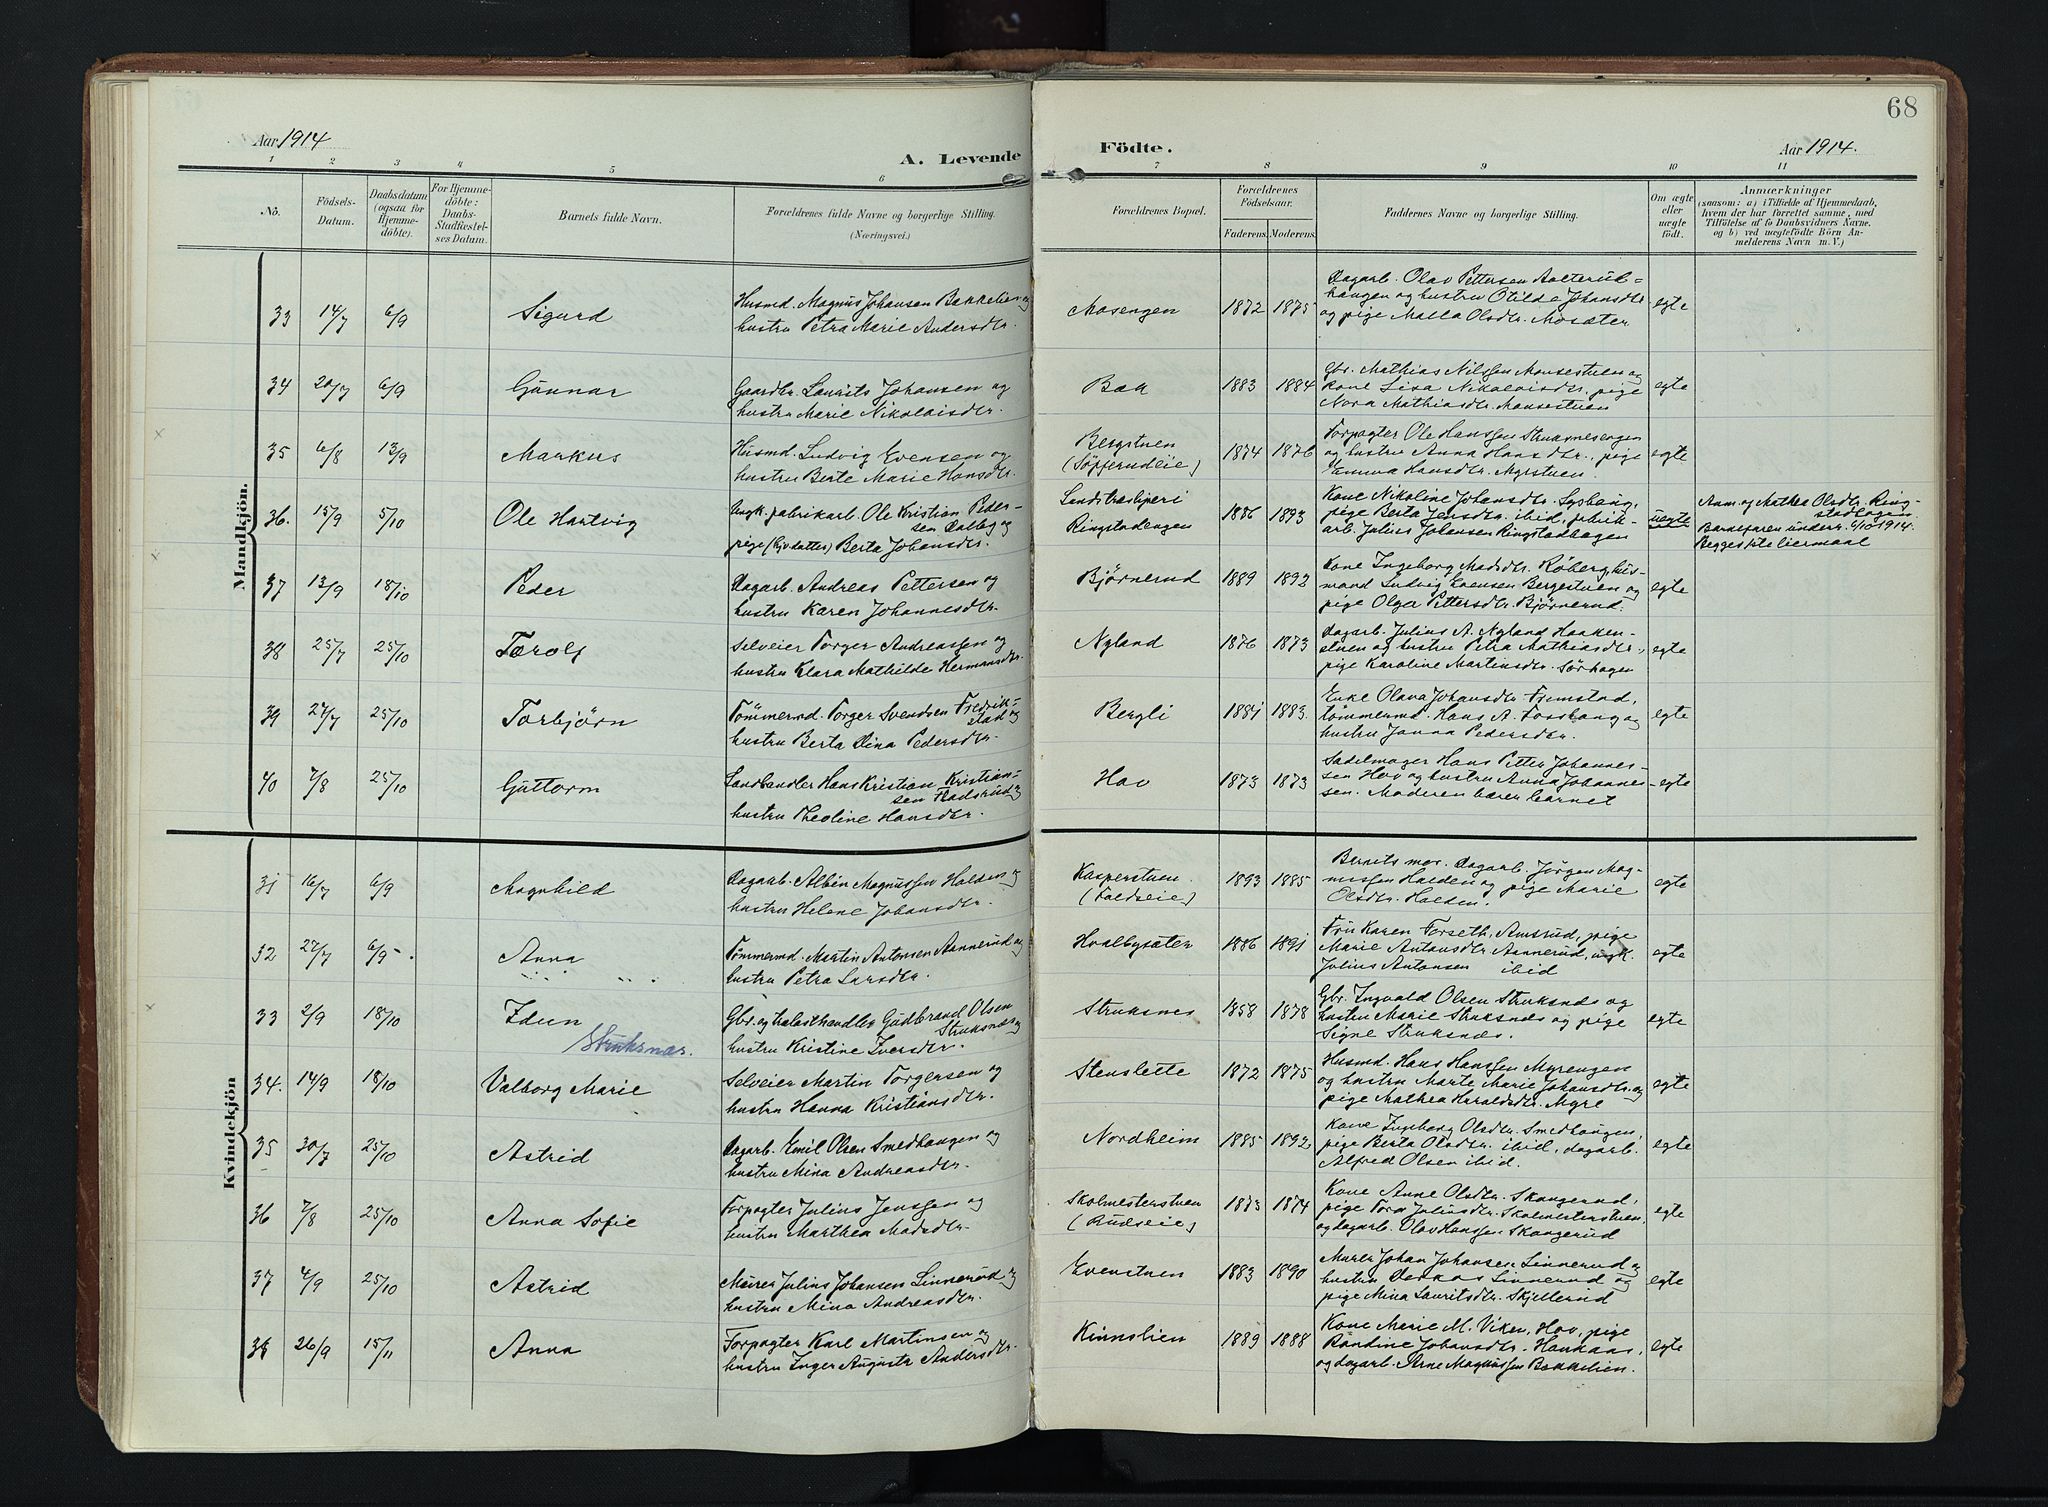 68
Aar 1914
A. Levende
Födte.
Aar 1914.
1 2 3 4 5 6 7 8 9 10 11
No.
Födsels-
Datum.
Daabsdatum
(ogsaa for
Hjemme-
döbte).
For Hjemme-
döbte:
Daabs-
Stadfæstel-
ses Datum.
Barnets fulde Navn.
Forældrenes fulde Navne og borgerlige Stilling.
(Næringsvei.)
Forældrenes Bopæl.
Forældrenes
Födselsaar.
Faderens. Moderens.
Faddernes Navne og borgerlige Stilling.
Om ægte
eller
uægte
födt.
Anmærkninger
(saasom: a) i Tilfælde af Hjemmedaab,
hvem der har forrettet samme, med
Tilföielse af to Daabsvidners Navne.
og b) ved uægtefödte Börn An-
melderens Navn m. V.)
Mandkjön.
33 14/7 6/9 Sigurd
Husmd. Magnus Johansen Bækkelien og
hustru Petra Marie Andersdtr.
Mosengen 1872 1875
Dagarb. Olav Pettersen
haugen og hustru Otilde Johansdtr
og pige Malla Olsdtr. Mosæter
egte
34 20/7 6/9 Gunnar
Gaardbr. Laurits Johansen og
hustru Marie Nikolaisdtr.
Bak 1883 1884
Gbr. Mathias Nilssen Monsestuen og
kone Lina Nikolaisdtr, pige
Nora Mathiasdtr. Monsestuen
egte
35 6/8 13/9 Markus
Husmd. Ludvig Evensen og
hustru Berte Marie Hansdtr.
Bergstuen
(Söpferudeie)
1874 1876
Forpagter Ole Hanssen Struksnesengen
og hustru Anna Hansdtr., pige
Emma Hansdtr. Myrstuen
egte
36. 15/9 5/10 Ole Hartvig
Ungk. fabrikarb. Ole Kristian Peder-
sen Dalby og
pige (Gjvdatter) Berta Johansdtr.
Landstræsliperi
Ringstadengen
1886 1893
Kone Nikoline Johansdtr. Lysbaug,
pige Berta Jensdtr. ibid, fabrik-
arb. Julius Johansen Ringstadhagen
uegte
Anm. og Mathea Olsdtr. Ring-
stadhagen.
Barnefaren underr. 6/10 1914.
Begges 1ste leiermaal
37 13/9 18/10 Peder
Dagarb. Andreas Pettersen og
hustru Karen Johannesdtr.
Björnerud 1889 1892
Kone Ingeborg Madsdtr. Röberg hus-
mand Ludvig Evensen Bergestuen og
pige Olga Pettersdtr. Björnerud.
egte
38 25/7 25/10 Torolf
Selveier Torger Andreassen og
hustru Klara Mathilde Hermansdtr.
Nyland 1876 1873
Dagarb. Julius A. Nyland Haaken-
stuen og hustru Petra Mathiasdtr,
pige Karoline Martinsdtr. Sörhagen
egte
39 27/7 25/10 Torbjörn
Tömmermd. Torger Svendsen Fredrik-
stad og
hustru Berta Dina Pedersdtr.
Bergli 1881 1883.
Enke Olava Johansdtr. Fremstad,
tömmermd. Hans A. Fossbaug og
hustru Janna Pedersdtr.
egte
40 7/8 25/10 Guttorm
Landhandler Hans Kristian Kristian-
sen Fladsrud og
hustru Theoline Hansdtr.
Hov 1873 1873
Sadelmager Hans Petter Johannes-
sen Hov og hustru Anna Johannes-
sen. Moderen bærer barnet
egte
Kvindekjön
31 16/7 6/9 Magnhild
Dagarb. Albin Magnussen Halden og
hustru Helene Johansdtr.
Kasperstuen
(Foldseie)
1893 1885
Barnets mor. Dagarb. Jörgen Mag-
nussen Halden og pige Marie
Olsdtr. Halden.
egte
32 27/7 6/9 Anna
Tömmermd. Martin Antonsen Aannerud og
hustru Petra Larsdtr.
Hvalbysæter 1886 1891
Fru Karen Forseth, Amsrud, pige
Marie Antonsdtr Aannerud, ungk.
Julius Antonsen ibid
egte
33 2/9 18/10 Idun
Struksnæs.
Gbr. og trælasthandler Gudbrand Olsen
Struksnæs og
hustru Kristine Iversdtr.
Struksnes 1858 1878
Gbr. Ingvald Olsen Struksnæs og
hustru Marie Struksnæs og pige
Signe Struksnæs.
egte
34. 14/9 18/10 Valborg Marie
Selveier Martin Torgersen og
hustru Hanna Kristiansdtr.
Stenslette 1872 1875
Husmd. Hans Hanssen Myrengen
og hustru Marte Marie Johansdtr. og
pige Mathea Haraldsdtr. Myre
egte
35 30/7 25/10 Astrid
Dagarb. Emil Olsen Smedhaugen og
hustru Mina Andreasdtr.
Nordheim 1885 1892
Kone Ingeborg Olsdtr. Smedhaugen,
pige Berta Olsdtr. ibid, dagarb.
Alfred Olsen ibid.
egte
36 7/8 25/10 Anna Sofie
Forpagter Julius Jenssen og
hustru Marthea Madsdtr.
Skolmesterstuen
(Rudseie)
1873 1874
Kone Anne Olsdtr. Skangerud,
pige Tora Juliusdtr. Skolmesterstuen,
og dagarb. Olav Hanssen Skangerud
egte
37 4/9 25/10 Astrid
Murer Julius Johansen Linnerud og
hustru Mina Andreasdtr.
Evenstuen 1883 1890
Murer Johan Johansen Linnerud og
hustru Dorkas Linnerud og
pige Mina Lauritsdtr. Skjellerud
egte
38 26/9 15/11 Anna
Forpagter Karl Martinsen og
hustru Inger Augusta Andersdtr.
Kinnslien 1889 1888
Kone Marie M. Viken, Hov, pige
Randine Johansdtr. Haukaas,
og dagarb. Arne Magnussen Bækkelien.
egte